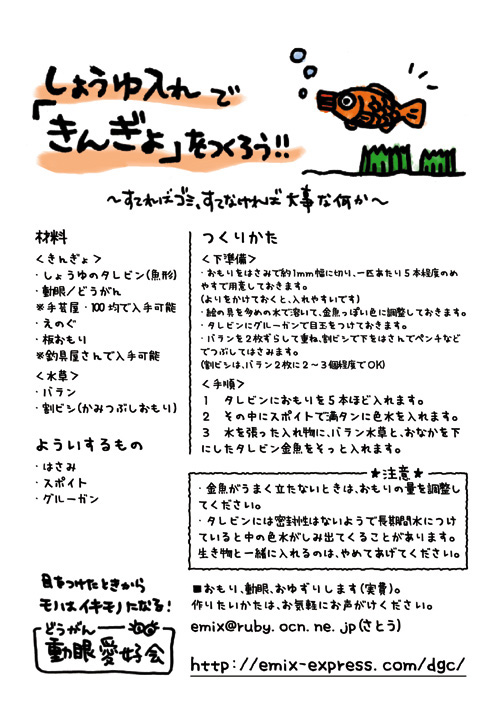 しょうゆ入れで
「きんぎょ」をつくろう!!
〜すてればゴミ、すてなければ大事な何か〜
材料
<きんぎょ>
・しょうゆのタレビン(魚形)
・動眼／どうがん
※手芸屋・100均で入手可能
・えのぐ
・板おもり
※釣具屋さんで入手可能
<水草>
・バラン
・割ビシ(かみつぶしおもり)
よういするもの
・はさみ
・スポイト
・グルーガン
つくりかた
<下準備>
・おもりをはさみで約1mm幅に切り、一匹あたり5本程度のめ
やすで用意しておきます。
(よりをかけておくと、入れやすいです)
・絵の具を多めの水で溶いて、金魚っぽい色に調整しておきます。
・タレビンにグルーガンで目玉をつけておきます。
・バランを2枚ずらして重ね、割ビシで下をはさんでペンチなど
でつぶしてはさみます。
(割ビシは、バラン2枚に2〜3個程度でOK)
<手順>
1 タレビンにおもりを5本ほど入れます。
2 その中にスポイトで満タンに色水を入れます。
3 水を張った入れ物に、バラン水草と、おなかを下
にしたタレビン金魚をそっと入れます。
★注意★
・金魚がうまく立たないときは、おもりの量を調整し
てください。
・タレビンには密封性はないようで長期間水につけ
ていると中の色水がしみ出てくることがあります。
生き物と一緒に入れるのは、やめてあげてください。
目をつけたときから
モノはイキモノになる!
どうがん
動眼愛好会
■おもり、動眼、おゆずりします(実費)。
作りたいかたは、お気軽にお声がけください。
emix@ruby.ocn.ne.jp(さとう)
http://emix-express.com/dgc/